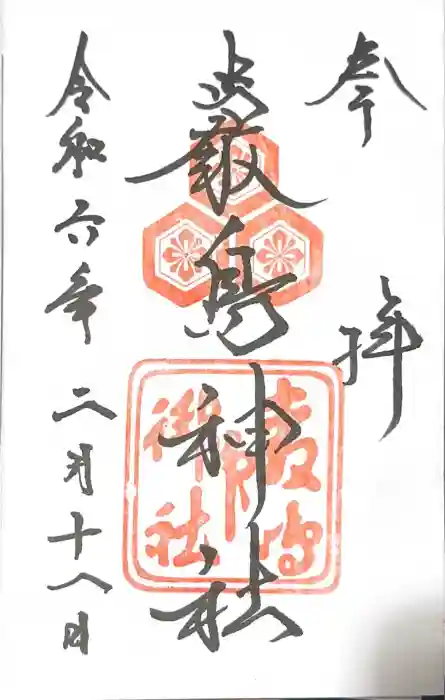 奉拝
厳島神社
厳島
御社
令和六年二月十八日